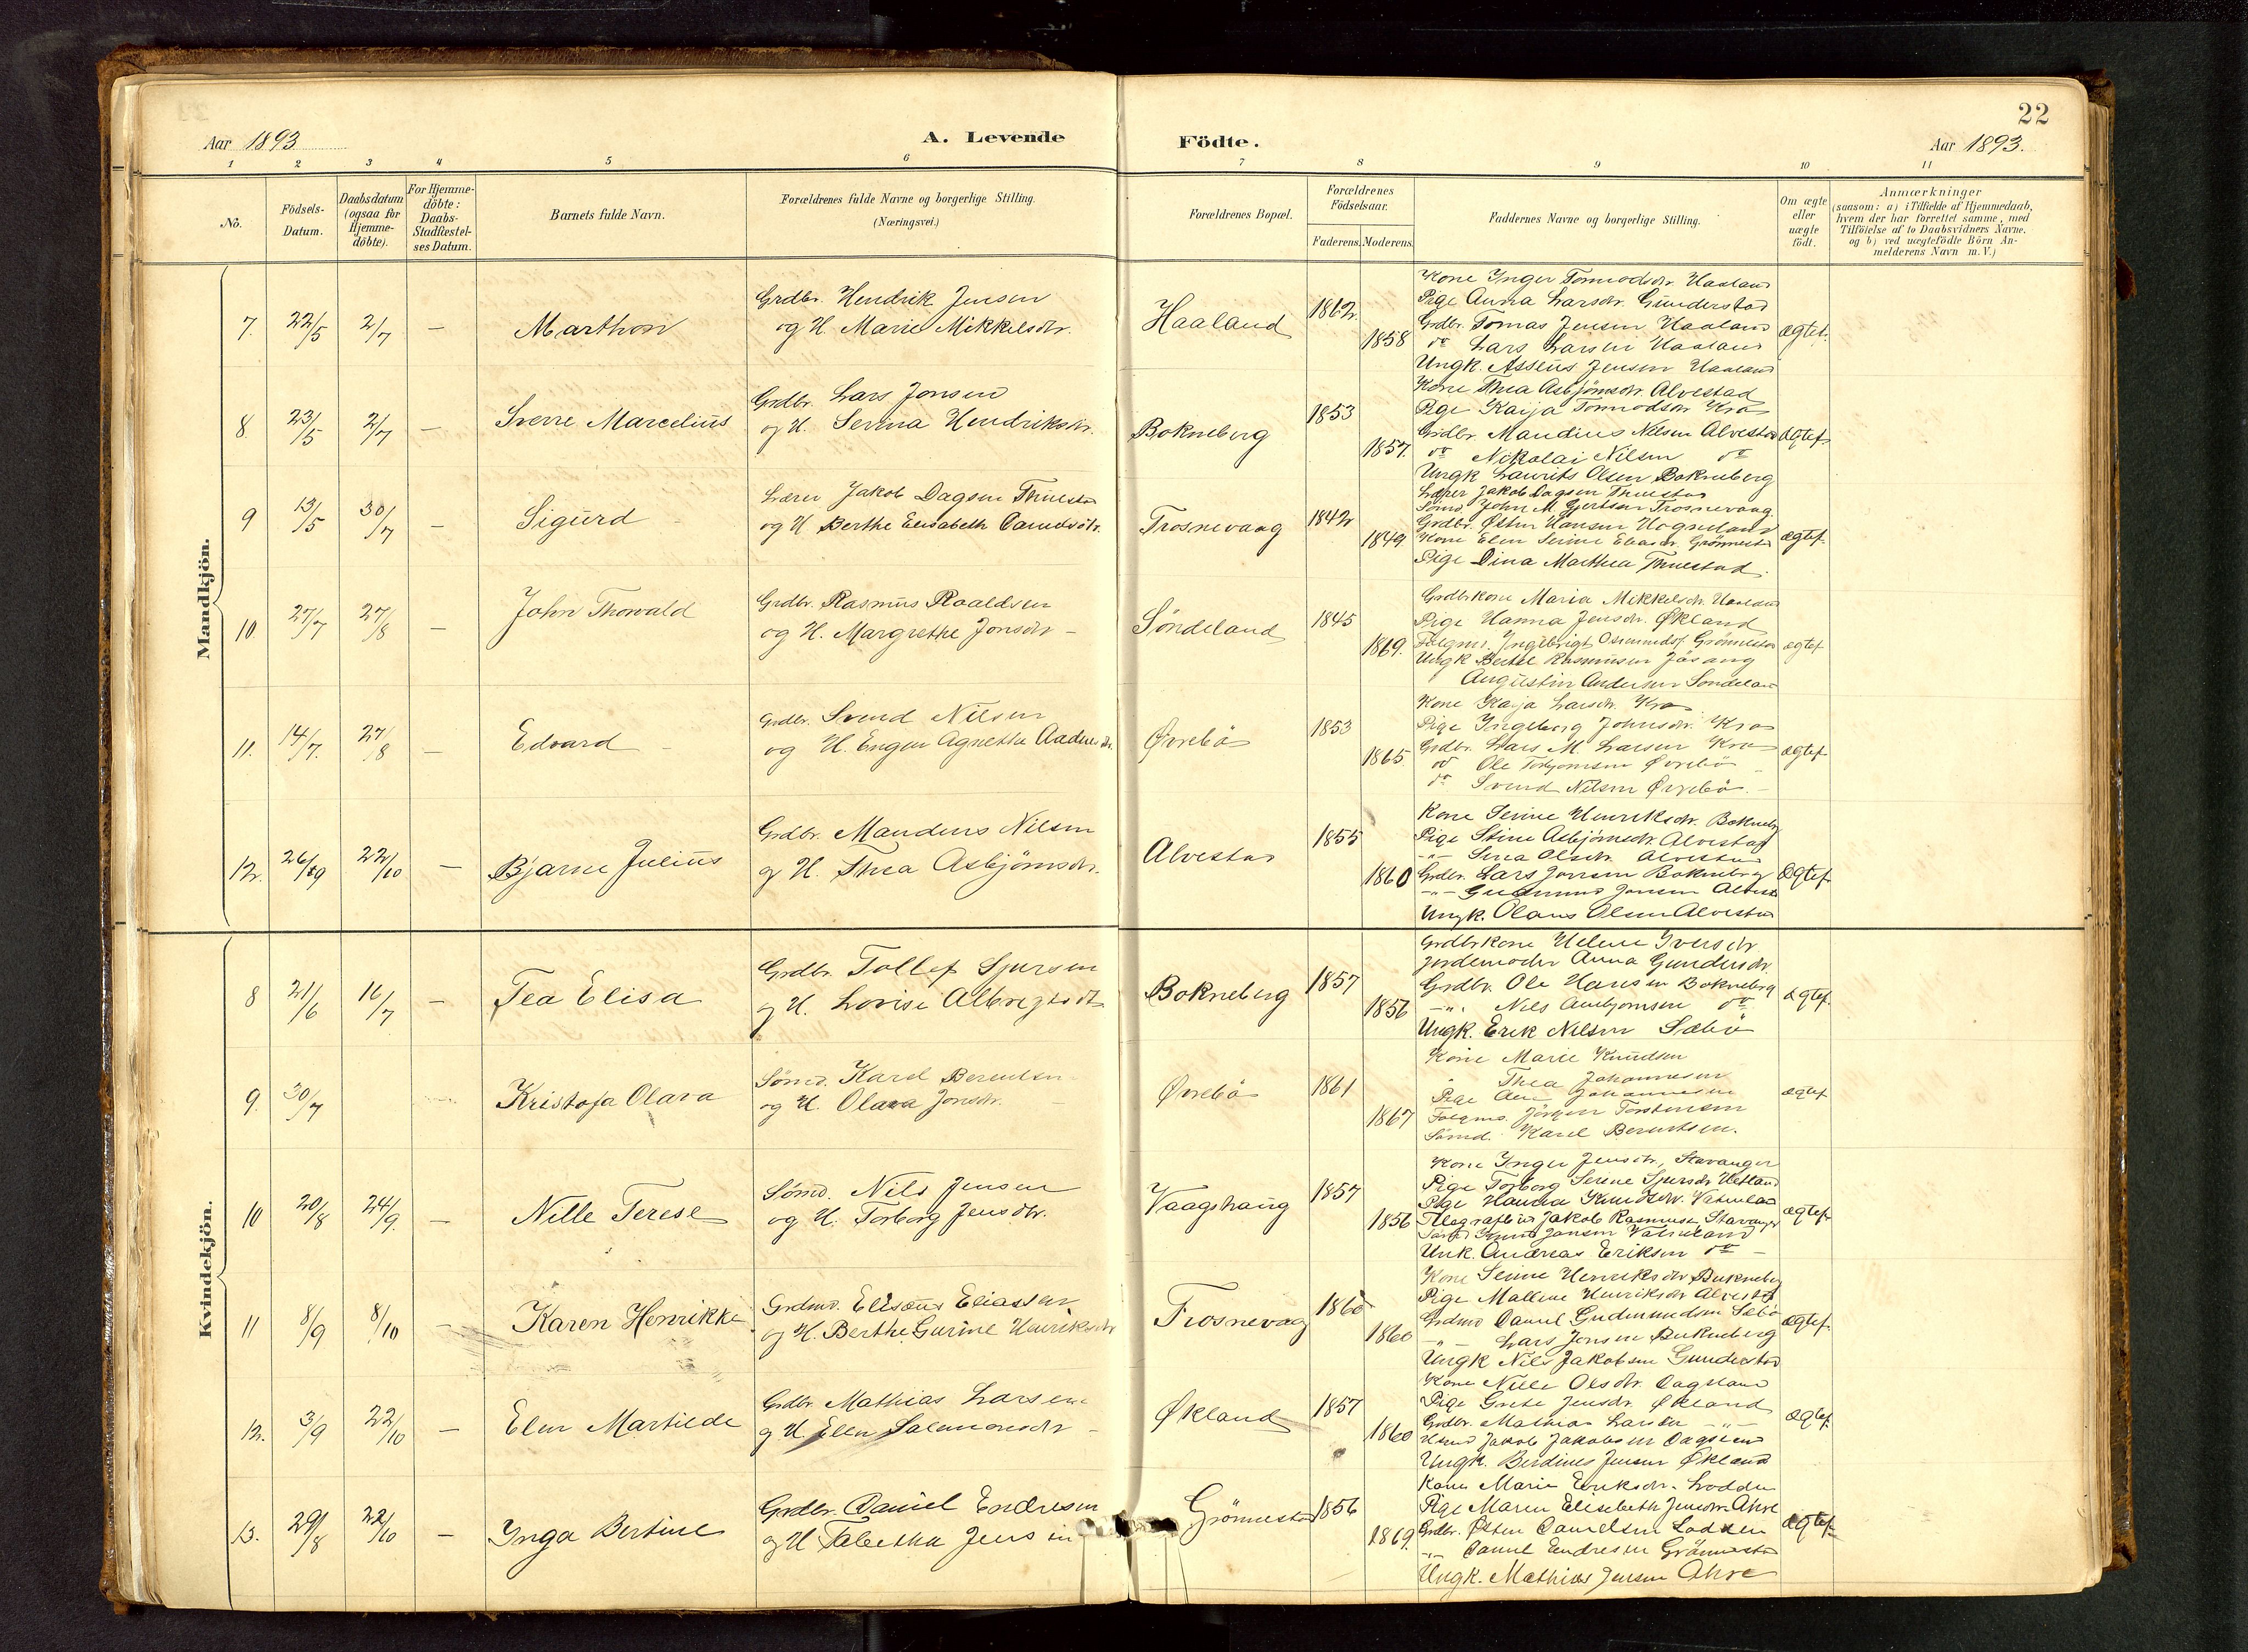 22
Aar 1893
A. Levende
Födte.
Aar 1893.
1 2 3 4 5 6 7 8 9 10 11
No.
Födsels-
Datum.
Daabsdatum
(ogsaa for
Hjemme-
döbte).
For Hjemme-
döbte:
Daabs-
Stadfæstel-
ses Datum.
Barnets fulde Navn.
Forældrenes fulde Navne og borgerlige Stilling.
(Næringsvei.)
Forældrenes Bopæl.
Forældrenes
Födselsaar.
Faderens. Moderens.
Faddernes Navne og borgerlige Stilling.
Om ægte
eller
uægte
födt.
Anmærkninger
(saasom: a) i Tilfælde af Hjemmedaab,
hvem der har forrettet samme, med
Tilföielse af to Daabsvidners Navne.
og b) ved uægtefödte Börn An-
melderens Navn m.V.)
Mandkjön.
7. 22/5 2/7 — Marthon
Grdbr. Hendrik Jensen
og H. Marie Mikkelsdtr.
Haaland 1862 1858
Kone Inger Tormodsdr. Haaland
Pige Anna Larsdr. Gunderstad
Grdbr. Tomas Jensen Haaland
do Lars Larsen Haaland
Ungk. Asseus Jensen Haaland
ægtef.
8. 23/5 2/7 — Sverre Marcelius
Grdbr. Lars Jonsen
og H. Serina Hendriksdr.
Bokneberg 1853 1857.
Kone Thea Asbjörnsdr. Alvestad
Pige Kaija Tormodsdr. Kro
Grdbr. Mandius Nilsen Alvestad
do Nikolai Nilsen do
Ungk Laurits Olsen Bokneberg
ægtef.
9 13/5 30/7 — Sigurd
Lærer Jakob Dagsen Thuestad
og H Berthe Elisabeth
Trosnevaag 1842 1849.
Lærer Jakob Dagsen Thuestad
Sömd. John M. Gjertsen Trosnevaag.
Grdbr. Østen Hansen Hogneland
Kone Elen Serine Eliasdr. Grönnestad
Pige Dina Mathea Thuestad.
ægtef.
10. 27/7 27/8 — John Thorvald
Grdbr. Rasmus Roaldsen
og H. Margrethe Jonsdr —
Söndeland 1845 1869.
Grdbrkone Maria Mikkelsdr. Haaland
Pige Hanna Jensdr. Økland
Ingebrigt Osmundsf. Grönnestad
Ungk Bertel Rasmusen Jösang
Augustin Andersen Sondeland
ægtef
11. 14/7. 27/8 — Edvard
Grdbr. Svend Nilsen
og H. Engen Agnethe
Øvrebö 1853 1865.
Kone Kaija Larsdr. Kro
Pige Ingeborg Johnsdr. Kro
Grdbr. Lars M. Larsen Kro
do Ole Torbjornsen Øvrebö
do Svend Nilsen Øvrebö. —
ægtef
12. 26/9 22/10 — Bjarne Julius
Grdbr. Mandius Nilsen
og H. Thea Asbjörnsdr.
Alvestad 1855 1860
Kone Serine Henriksdr. Bokneberg
Pige Stine Asbjörnsdr. Alvestad
—"— Olsdr. Alvestad
Grdbr. Lars Jonsen Bokneberg
—"— Gudmund Jonsen Alvestad
Ungk. Olaus Olsen Alvestad
ægtef
Kvindekjön.
8 21/6 16/7 — Tea Elisa
Grdbr. Tollef Sjursen
og H. Lovise
Bokneberg 1857 1856
Grdbrkone Helene Iversdr.
Jordemoder Anna Gundersdr.
Grdbr. Ole Hansen Bokneberg
—"— Nils do
Ungk. Erik Nilsen Sæbö
ægtef.
9. 30/7 Kristofa Olava
Sömd. Karel Berentsen
og H. Olava Jonsdr. —
Øvrebö 1861 1867
Kone Marie Knudsen
Thea Johannesen
Pige Johannesen
Jörgen Torstensen
Sömd. Karel Berentsen.
ægtef
10 20/8 24/9. — Nille Terese
Sömd. Nils Jensen
og H. Torborg Jensdtr.
Vaagshaug 1857 1856
Kone Inger Jensdtr, Stavanger
Pige Torborg Serine Sjursdr Hetland
Pige Hanna Knudsdr. Vatneland
Jakob Rasmusen Stavanger
Knut Jansen Vatneland
Unk. Andreas Eriksen do —
ægtef
11 8/9 8/10 — Karen Henrikke
Grdmd. Elisæus Eliassen
og H. Berthe Gurine Henriksdr
Trosnevag 1860 1860
Kone Serine Henriksdr Bukneberg
Pige Mallene Henriksdr Alvestad
Grdmd Daniel Gudmundsen Sæbö
—"— Lars Jonsen Bukneberg
Ungk Nils Jakobsen Gunderstad
ægtef.
12. 3/9 22/10 — Elen Martilde
Grdbr. Mathias Larsen
og H. Ellen Salamonsdr —
Økland 1857 1860
Kone Nille Olsdtr. Dagsland
Pige Grete Jensdr. Økland
Grdbr. Mathias Larsen —"—
Jakob Jakobsen Dagsland
Ungk. Berdines Jensen Økland
ægtef.
13. 29/8 22/10 — Inga Bertine
Grdbr. Daniel Endresen
og H Tabetha Jensen
Grönnestad 1856 1869.
Kone Marie Eriksdr. Lodden
Pige Maren Elisebeth Jensdr. Ahre
Grdbr. Østen Danielsen Lodden
—"— Daniel Endresen Grönnestad
Ungk. Mathias Jensen Ahre
ægtef.